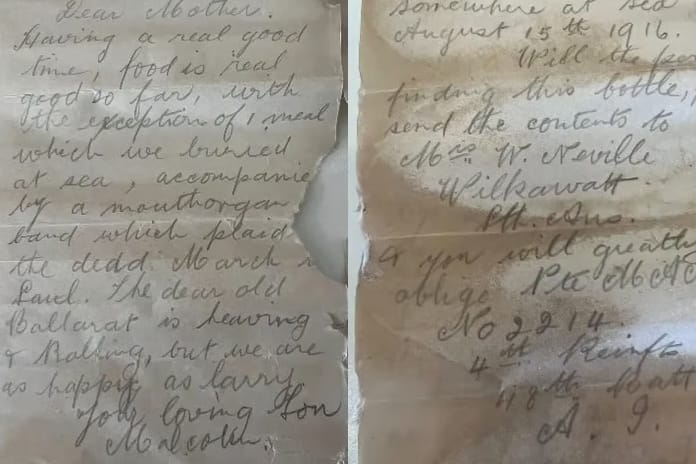 Dear Mother.
Having a real good
time, food is real
good so far, with
the exception of 1 meal
which we buried
at sea, accompanie
by a mouthorgan
band which plaid
the dedd. March
Saul. The dear old
Ballarat is heaving
& Rolling, but we are
as happy as larry
Your loving Son
Malcolm.
somewhere at Sea
August 15th 1916.
Will the per
finding this bottle,
send the contents to
Mrs W. Neville
Wilkawatt.
Sth. Aus.
& you will greatly
oblige Pte M. A
No 2214.
4th Reinfts
48th Batt
A. I.